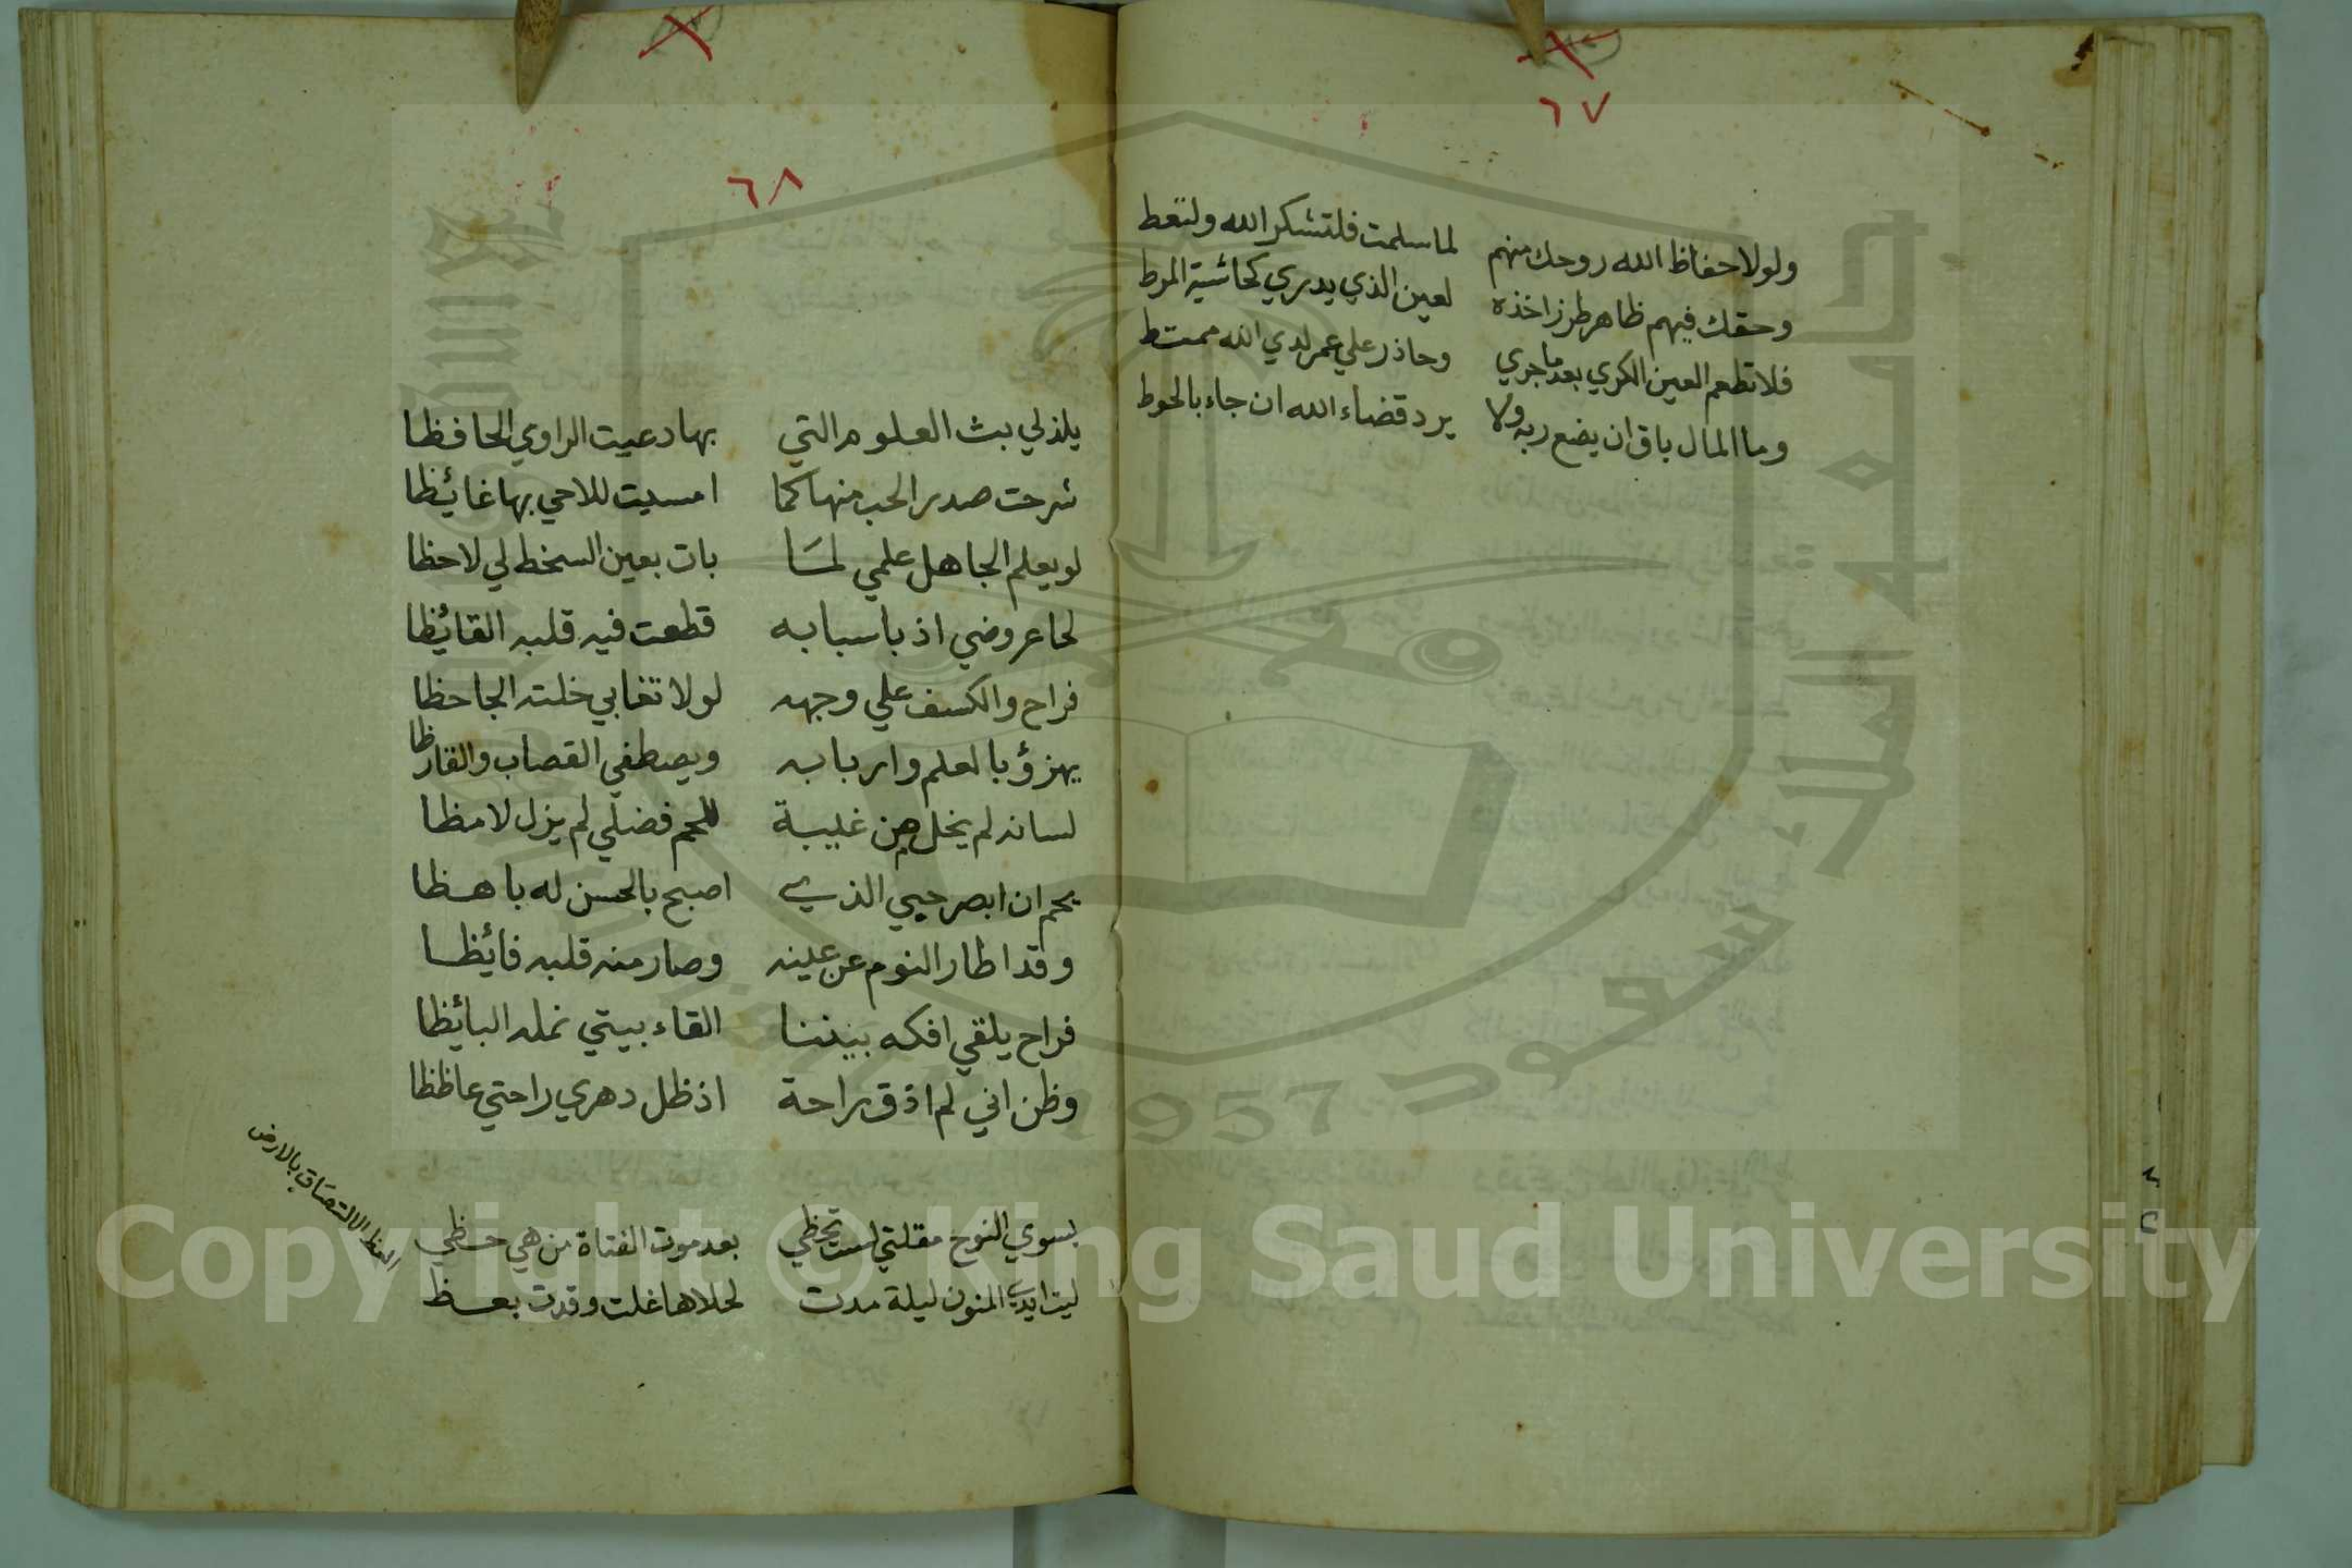 ٦٧
ولولا حفاظ الله روحك منهم لما سلمت فلتشكر الله ولتعط
وحقك فيهم ظاهر طرز اخذه لعين الذي يدري كحاشية المرط
فلا تطعم العين الكري بعد ما جري وحاذر علي عمر لدي الله ممتط
وما المال باق ان يضع ربه ولا يرد قضاء الله ان جاء بالحوط
٦٨
يلذ لي بث العلوم التي بها دعيت الراوي الحافظا
شرحت صدر الحب منها كما امسيت للاحي بها غائظا
لو يعلم الجاهل علمي لمَا بات بعين السخط لي لاحظا
لحا عروضي اذ باسبابه قطعت فيه قلبه القائظا
فراح والكسف علي وجهه لولا تغابي خلته الجاحظا
يهزؤ بالعلم واربابه ويصطفي القصاب والقارظا
لسانه لم يخل من غيبة للحم فضلي لم يزل لامظا
يحم ان ابصر حبي الذي اصبح بالحسن له باهظا
وقد اطار النوم عن عينه وصار منه قلبه فائظا
فراح يلقي افكه بيننا القاء بيتي نمله البائظا
وظن اني لم اذق راحة اذ ظل دهري راحتي عاظظا
بسوي النوح مقلتي لست تحظي بعد موت الفتاة من هي حظي
ليت ايدي المنون ليلة مدت لحلاها غلت وقدت بعظ
العظ الالتصاق بالارض
Copyright © King Saud University
جامعة الملك سعود
1957